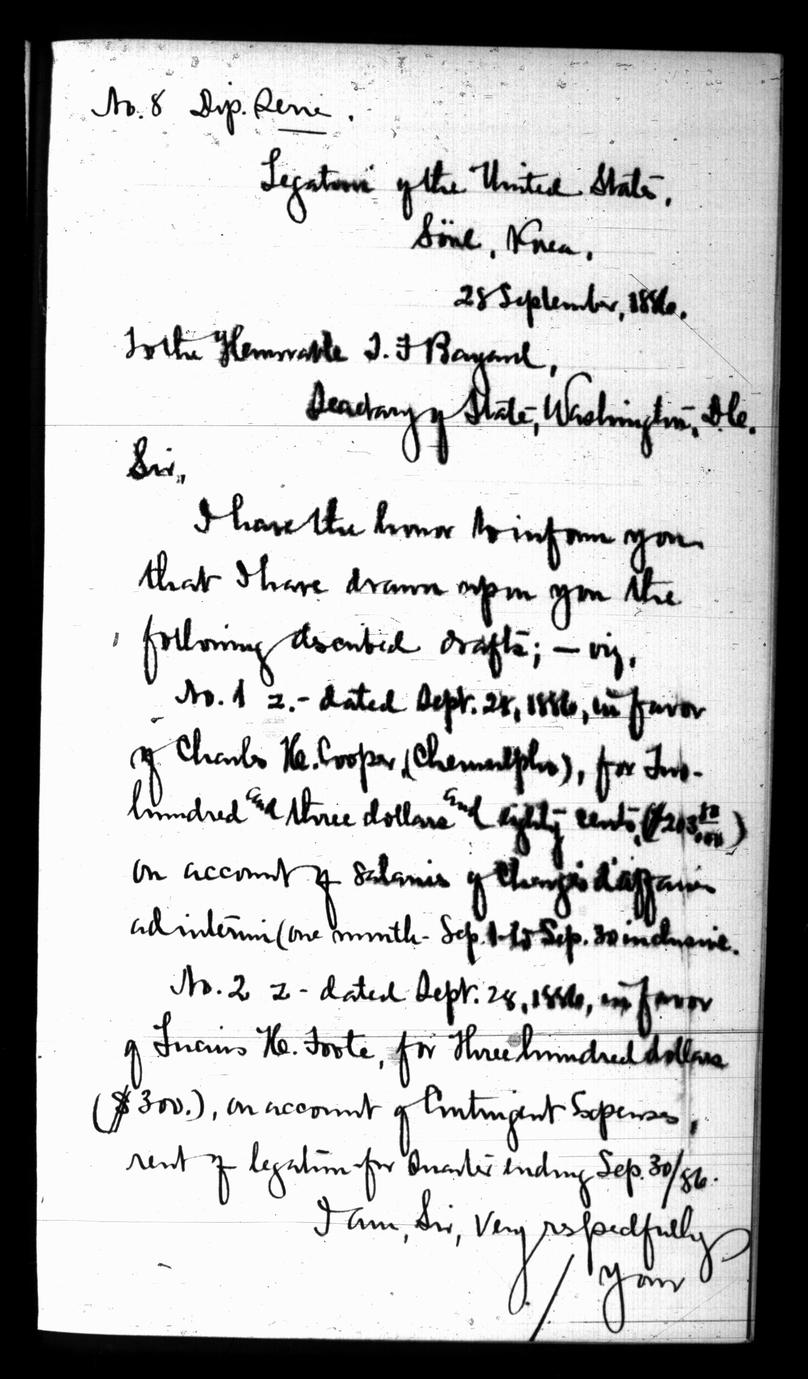 No. 8 Dip. Serie.
Legation of the United States,
Söul, Korea,
28 September, 1886.
To the Honorable T. F Bayard,
Secretary of State, Washington, D.C.
Sir,
I have the honor to inform you
that I have drawn upon you the
following described drafts; — viz,
No. 1 z.- dated Sept. 28, 1886, in favor
of Charles H. Cooper, (Chemulpho), for Two-
hundred and three dollars and eighty cents, ($203 80/100)
on account of salaries of Chargé d'affaires
ad interim (one month - Sep. 1 to Sep. 30 inclusive.
No. 2 z - dated Sept. 28, 1886, in favor
of Lucius H. Foote, for Three hundred dollars
($300.), on account of Contingent Expenses,
rent of legation for Quarter ending Sep. 30/86.
I am, Sir, Very respectfully
/ Your